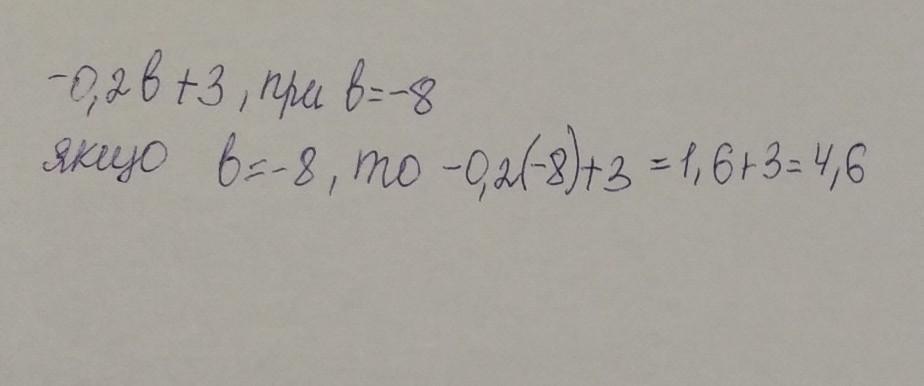 -0,2в+3, при в=-8
якщо в=-8, то -0,2(-8)+3=1,6+3=4,6